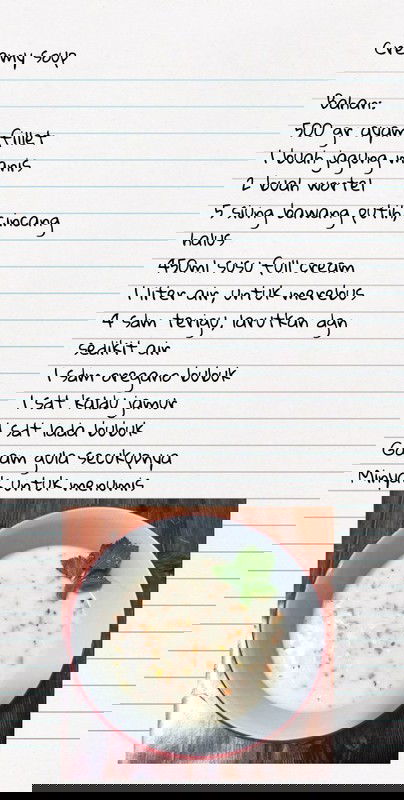 Creamy soup
Bahan:
500 gr ayam fillet
1 buah jagung manis
2 buah wortel
5 siung bawang putih, cincang
halus
450ml susu full cream
1 liter air, untuk merebus
4 sdm terigu, larutkan dgn
sedikit air
1 sdm oregano bubuk
1 sdt kaldu jamur
1 sdt lada bubuk
Garam gula secukupnya
Minyak untuk menumis